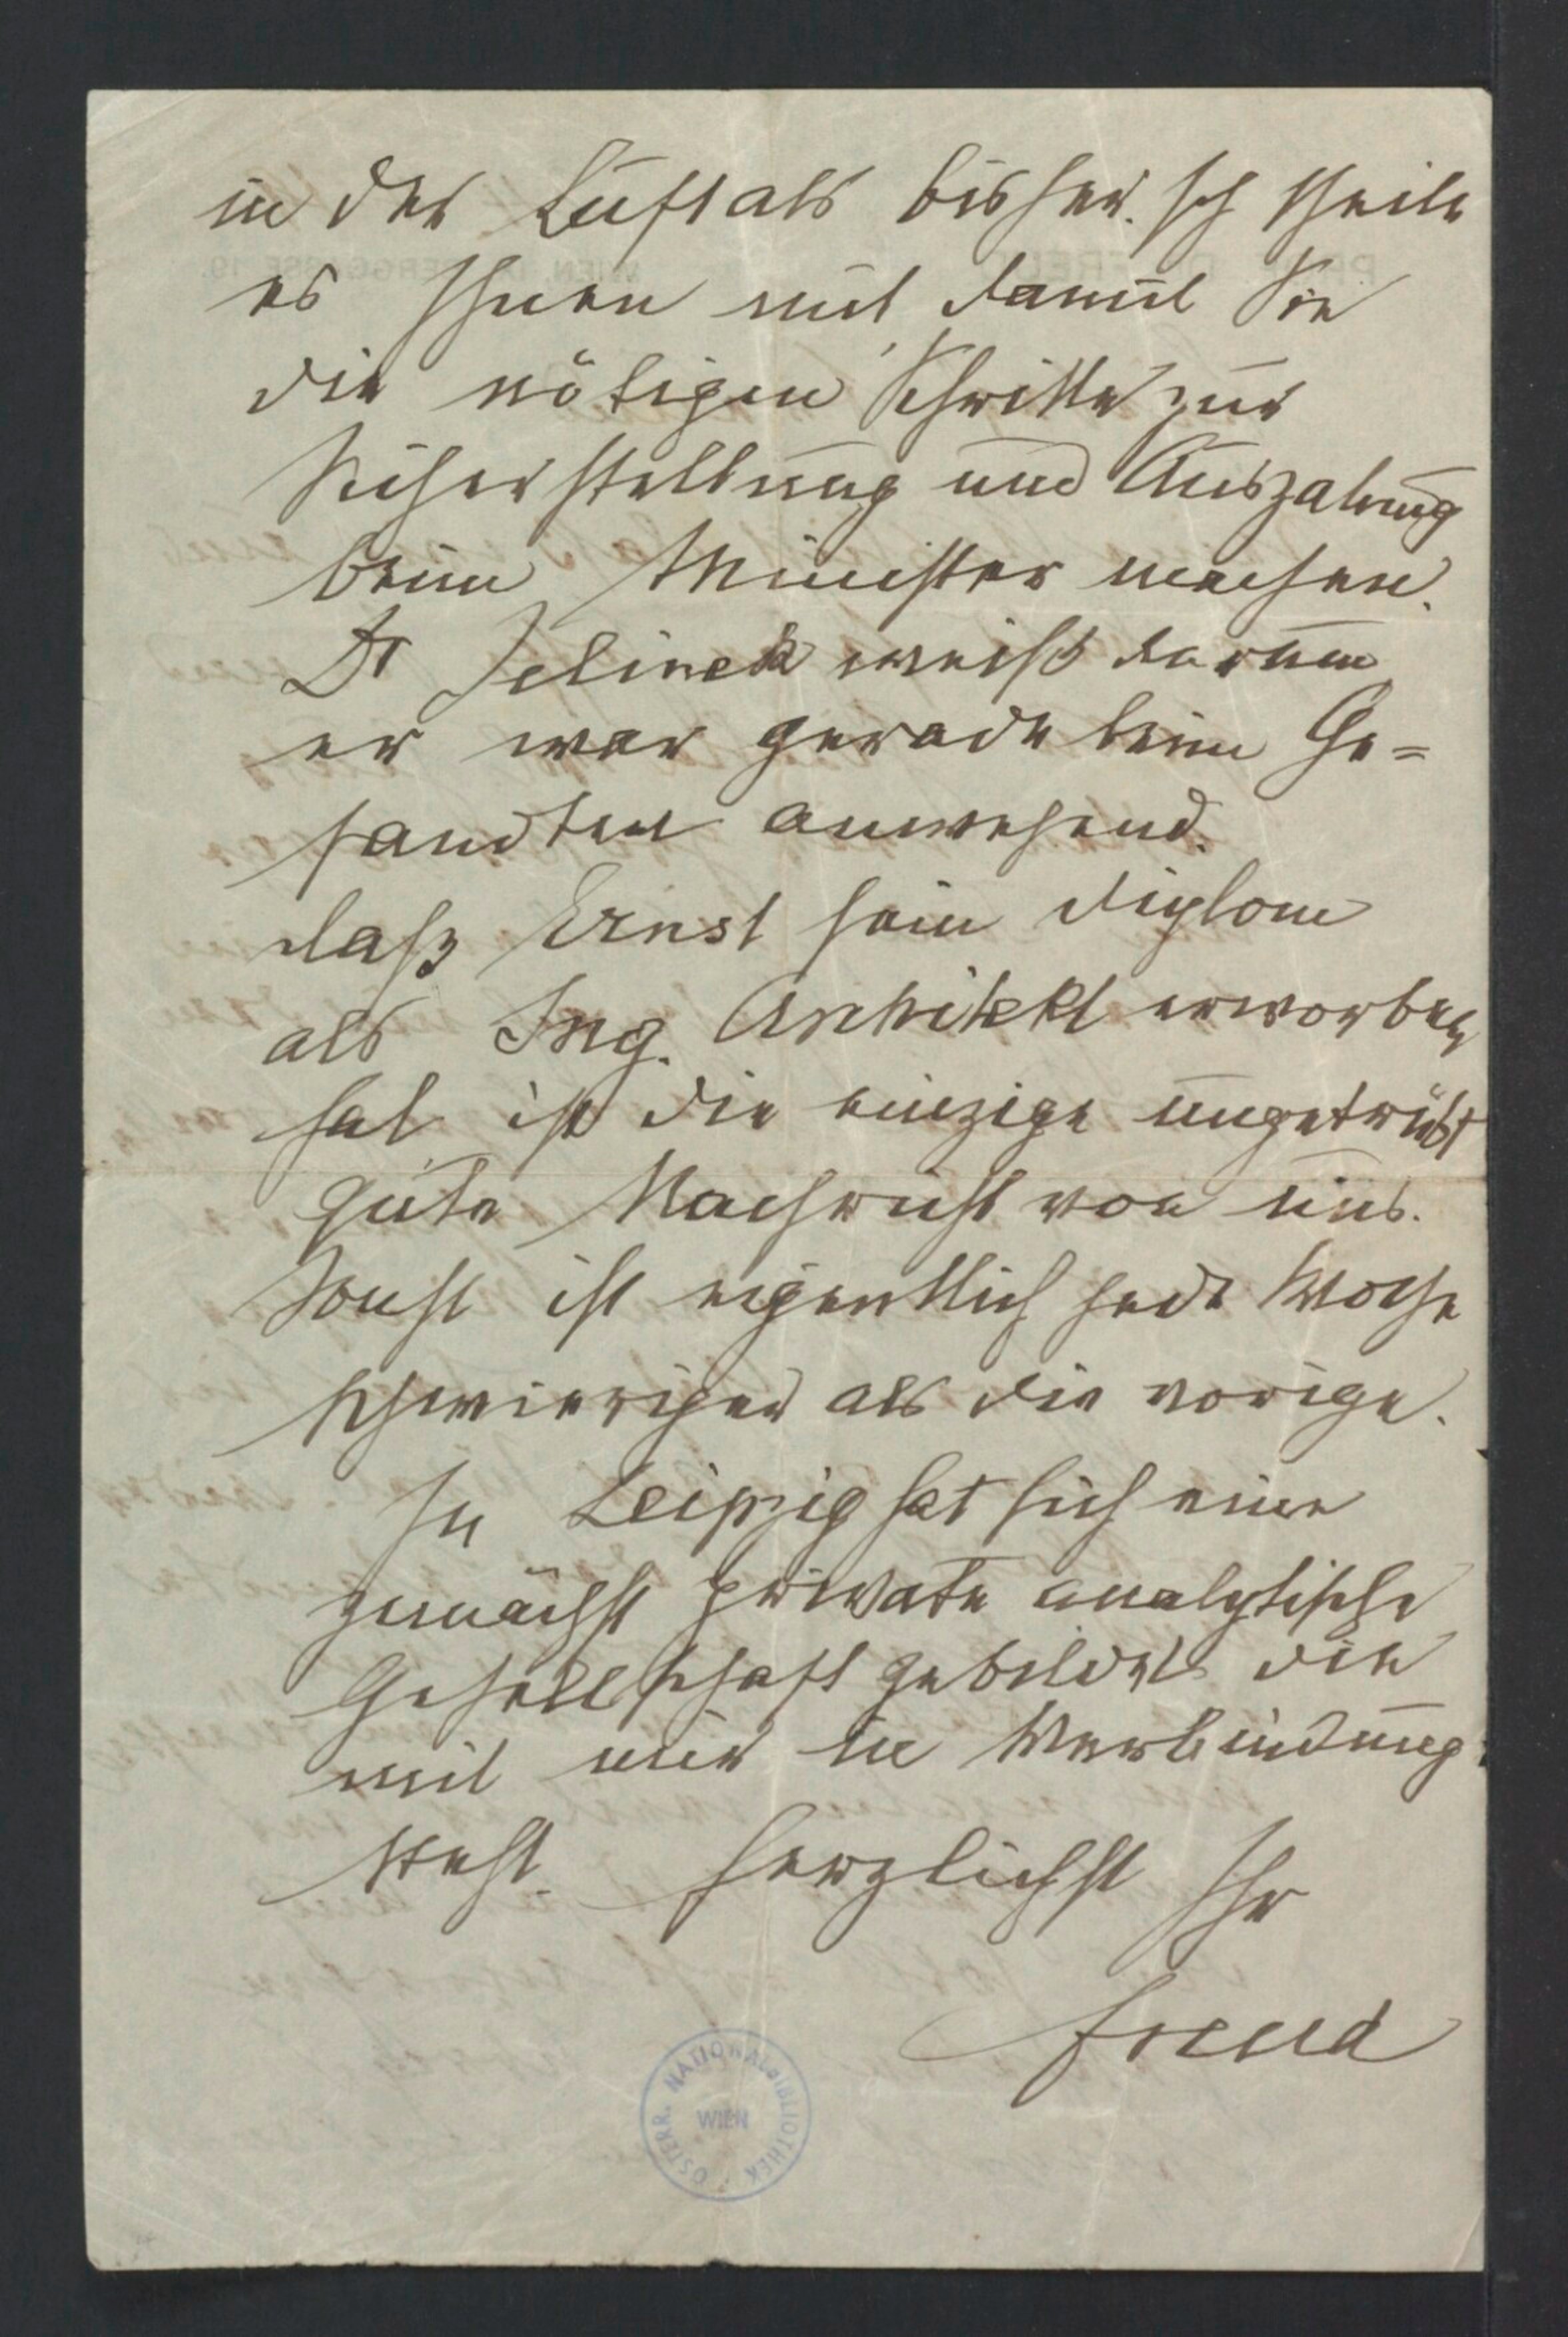 in der Luft als bisher. Ich theile
es Ihnen mit, damit Sie
die nötigen Schritte zur
Sicherstellung und Auszalung
beim Minister machen.
Dr Jelinek weiß darum,
er war gerade beim Ge=
sandten anwesend.
Daß Ernst sein Diplom
als Ing. Architekt erworben
hat ist die einzige ungetrübt
gute Nachricht von uns.
Sonst ist eigentlich jede Woche
schwieriger als die vorige.
In Leipzig hat sich eine
zunächst private analytische
Gesellschaft gebildet die
mit mir in Verbindung
steht. Herzlichst Ihr
Freud
ÖSTERR. NATIONALBIBLIOTHEK
WIEN